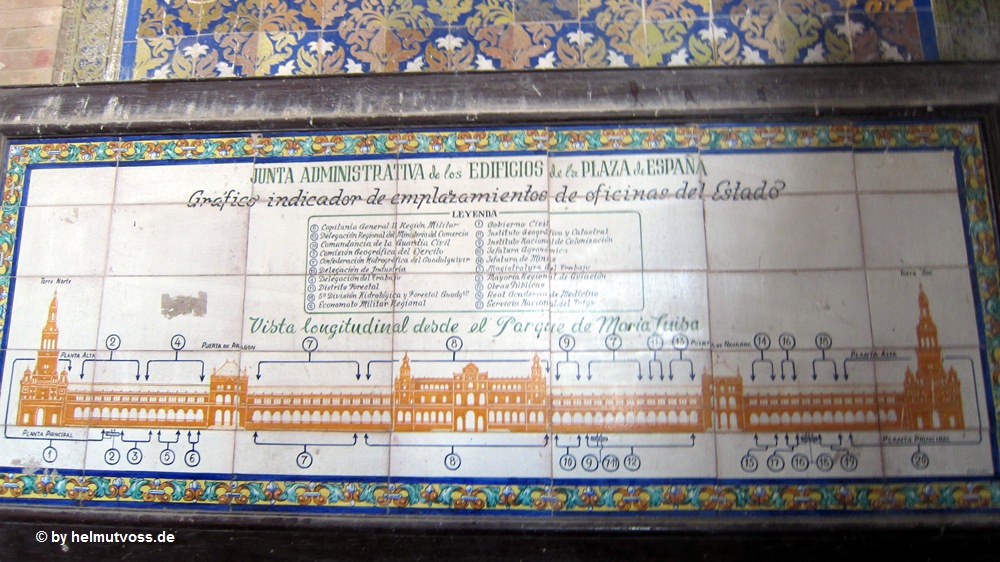 JUNTA ADMINISTRATIVA de los EDIFICIOS de la PLAZA de ESPAÑA
Gráfico indicador de emplazamientos de oficinas del Estado
LEYENDA
Capitanía General II Región Militar
Delegación Regional del Ministerio del Comercio
Comandancia de la Guardia Civil
Comisión Geográfica del Ejército
Confederación Hidrográfica del Guadalquivir
Delegación de Industria
Delegación del Trabajo
Distrito Forestal
5ª División Hidrológica y Forestal Guadqvir
Economato Militar Regional
Gobierno Civil
Instituto Geográfico y Catastral
Instituto Nacional de Colonización
Jefatura Agronómica
Jefatura de Minas
Magistratura del Trabajo
Mayoría Regional de Aviación
Obras Públicas
Real Academia de Medicina
Servicio Nacional del Trigo
Vista longitudinal desde el Parque de María Luisa
Torre Norte
Torre Sur
PLANTA ALTA 2 4 PUERTA DE ARAGON 7 8 9 7 11 13 PUERTA DE NAVARRA 14 16 18 PLANTA ALTA
PLANTA PRINCIPAL PLANTA PRINCIPAL
1 2 3 5 6 7 8 10 9 7-11 12 15 17 16 18 19 20
© by helmutvoss.de